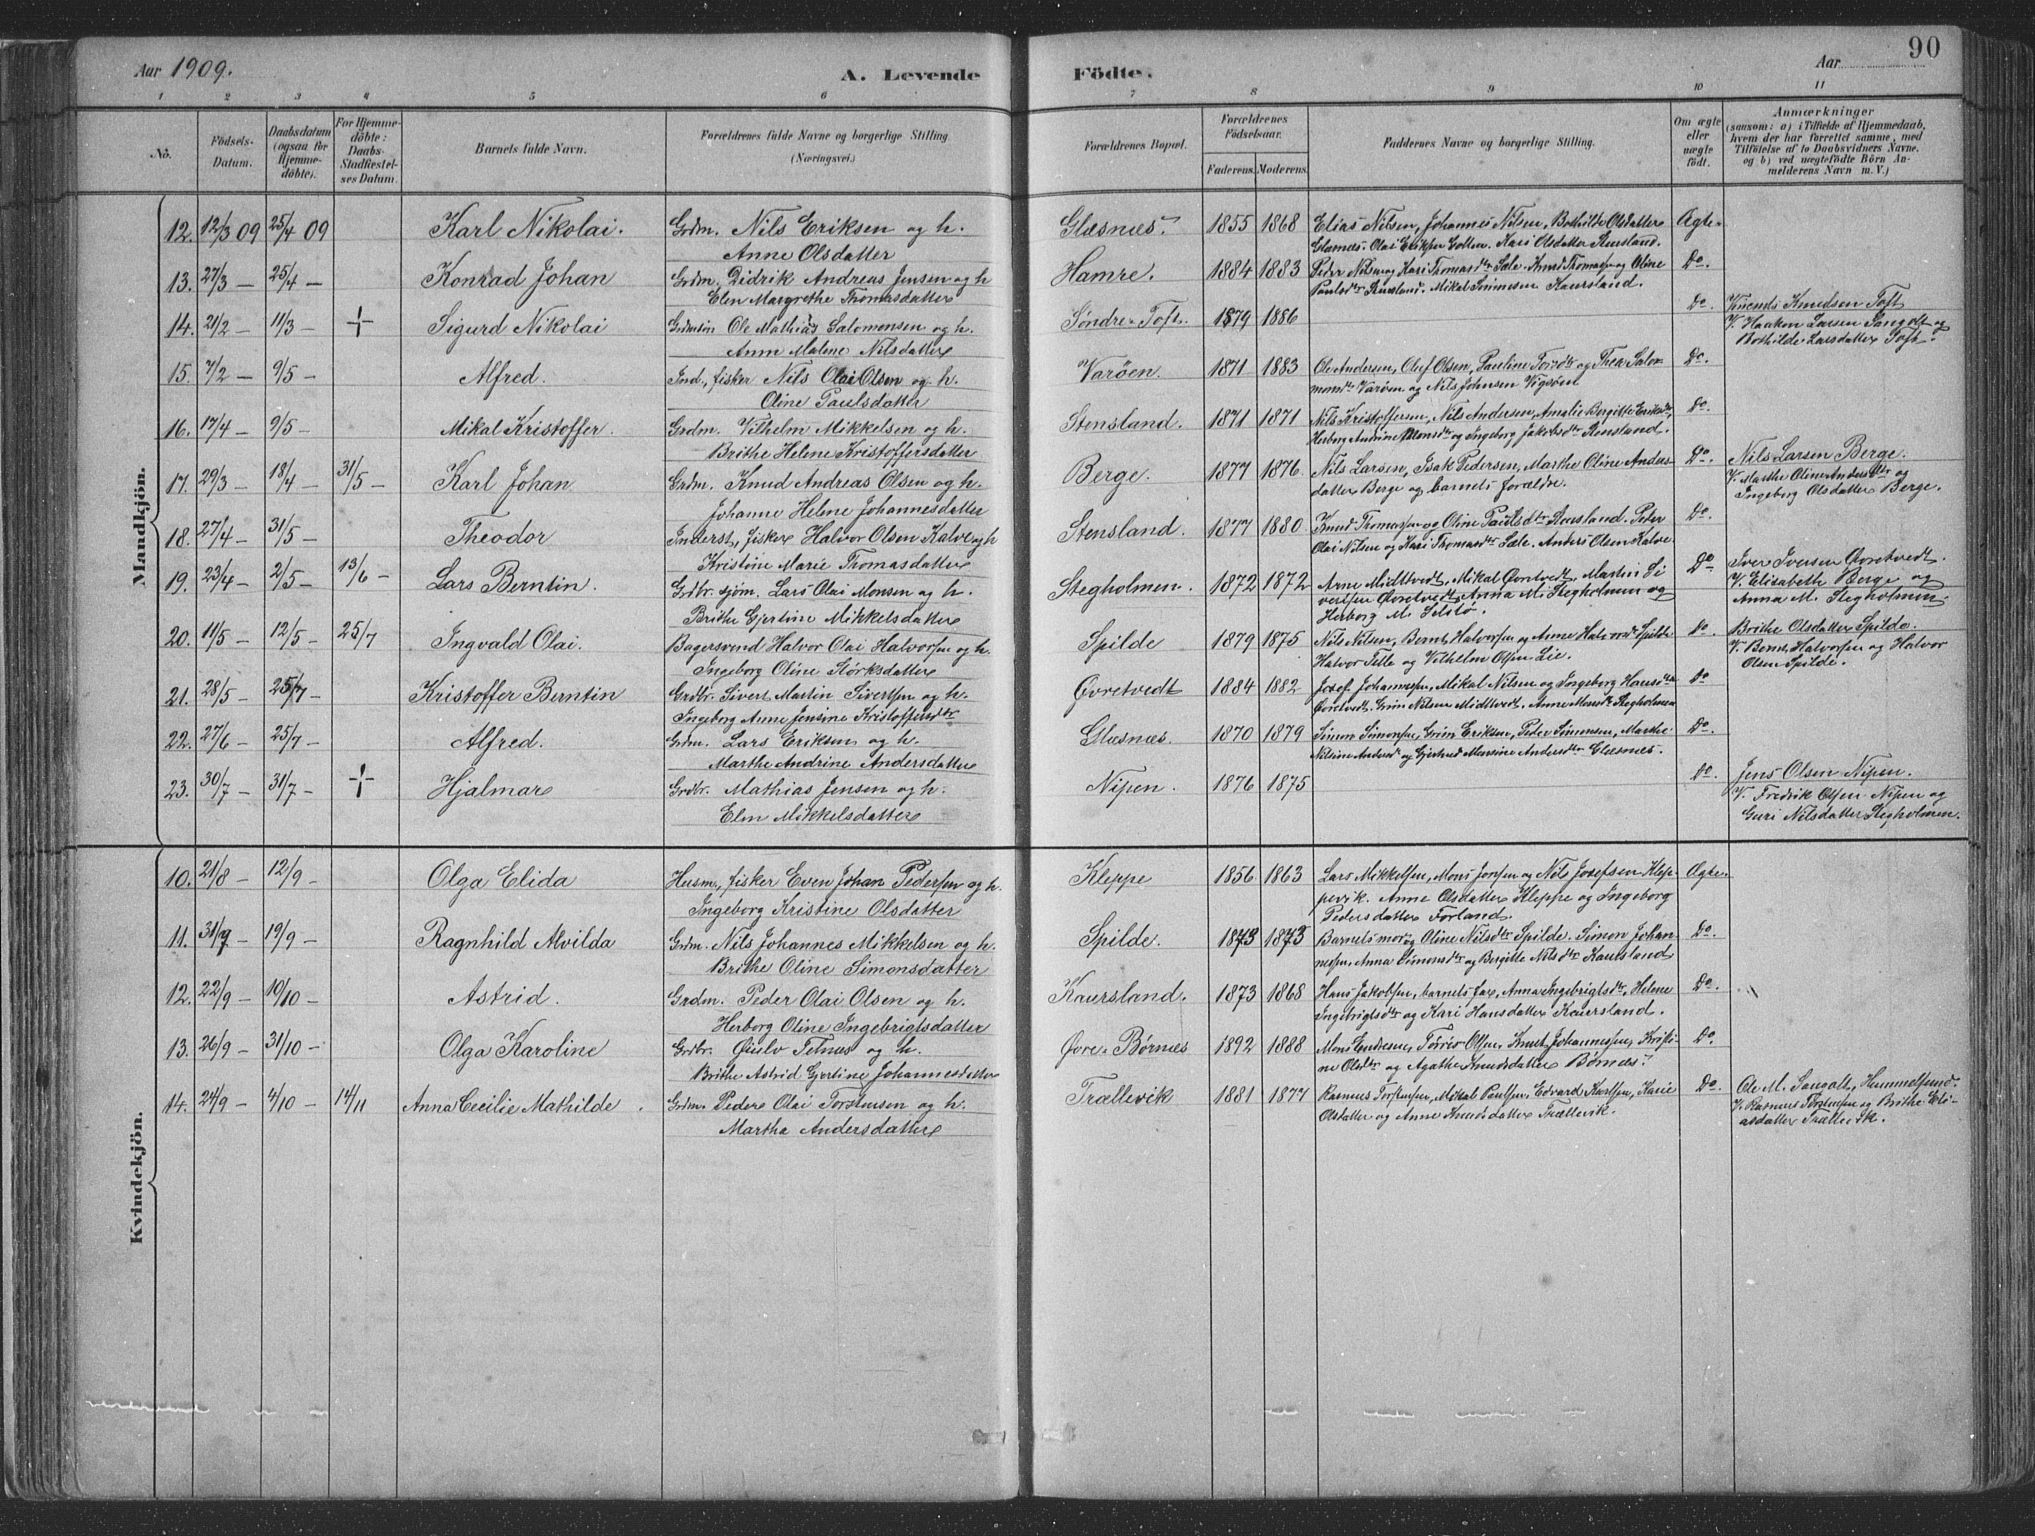 Aar 1909.
A. Levende
Födte.
Aar
90
1 2 3 4 5 6 7 8 9 10 11
No.
Födsels-
Datum.
Daabsdatum
(ogsaa for
Hjemme-
döbte).
For Hjemme-
döbte:
Daabs-
Stadfæstel-
ses Datum.
Barnets fulde Navn.
Forældrenes fulde Navne og borgerlige Stilling
(Næringsvei.)
Forældrenes Bopæl.
Forældrenes
Födselsaar.
Faderens. Moderens.
Faddernes Navne og borgerlige Stilling.
Om ægte
eller
uægte
födt.
Anmærkninger
(saasom: a) i Tilfælde af Hjemmedaab,
hvem der har forrettet samme, med
Tilföielse af to Daabsvidners Navne.
og b) ved uægtefödte Börn An-
melderens Navn m. V.)
Mandkjön.
12. 12/3 09 25/4 09 Karl Nikolai. Grdm. Nils Eriksen og h.
Anne Olsdatter
Glæsnes. 1855 1868 Elias Nilsen, Johannes Nilsen, Bothilde Olsdatter
Glæsnes. Olai Eriksen Kari Olsdatter Stensland.
Ægte
13. 27/3 — 25/4 — Konrad Johan Grdm. Didrik Andreas Jensen og h
Elen Margrethe Thomasdatter
Hamre. 1884 1883 Peder Nilsen og Kari Thomasdtr Sæle. Knud Thomassen og Oline
Paulsdtr Stensland. Mikal Kaursland.
Do.
14. 21/2 — 11/3 — + Sigurd Nikolai Ole Mathias Salomonsen og h.
Anne Malene Nilsdatter
Söndre Toft. 1879 1886 Do. Knudsen Toft
V. Haakon Larsen og
Bothilde Larsdatter Toft.
15. 7/2 — 9/5 — Alfred. Ind., fisker Nils Olai Olsen og h.
Oline Paulsdatter
Varöen. 1871 1883 Ole Andersen, Oluf Olsen, Pauline og Thea Salo-
monsdtr Varöen og Nils Johnsen Vigsöen
Do
16. 17/4 — 9/5 — Mikal Kristoffer. Grdm. Vilhelm Mikkelsen og h.
Brithe Helene Kristoffersdatter
Stensland. 1871 1871 Nils Kristoffersen, Nils Andersen, Amalie Bergitte Eriksdtr,
Herborg Andrine og Ingeborg Jakobsdtr Stensland.
Do.
17. 29/3 — 18/4 — 31/5 — Karl Johan Grdm. Knud Andreas Olsen og h.
Johanne Helene Johannesdatter
Berge. 1877 1876. Nils Larsen, Isak Pedersen, Marthe Oline Anders-
datter Berge og barnets forældre.
Do. Nils Larsen Berge.
V. Marthe Oline Andersdtr og
Ingeborg Olsdatter Berge.
18. 27/4 — 31/5 — Theodor Inderst, fisker Halvor Olsen Kalve og h
Kristine Marie Thomasdatter
Stensland. 1877 1880. Knud Thomassen og Oline Paulsdtr Stensland. Peder
Olai Nilsen og Kari Thomasdtr Sæle. Anders Olsen Kalve
Do.
19. 23/4 — 2/5 — 13/6 — Lars Berntin. Grdbr. sjöm. Lars Olai Monsen og h.
Brithe Gjertine Mikkelsdatter
Stegholmen. 1872 1872 Arne Midttvedt, Mikal Övretvedt, Martin Si-
vertsen Övretvedt, Anna M. Stegholmen og
Herborg M. Selstö.
Do Iver Iversen Övretvedt.
V. Elisabeth Berge og
Anna M. Stegholmen.
20. 11/5 — 12/5 — 25/7 Ingvald Olai. Bagersvend Halvor Olai Halvorsen og h.
Ingeborg Oline Störksdatter
Spilde 1879 1875. Nils Nilsen, Bernt Halvorsen og Anne Halvorsd Spilde
Halvor Telle og Vilhelm Olsen Lie.
Do. Brithe Olsdatter Spilde.
V. Bernt Halvorsen og Halvor
Olsen Spilde.
21. 28/5 — 25/7 — Kristoffer Berntin Grdbr. Sivert Martin Sivertsen og h.
Ingeborg Anne Jensine Kristoffersdtr
Övretvedt 1884 1882 Josef Johannessen, Mikal Nilsen og Ingeborg Hansdtr
Övretvedt. Grim Nilsen Midttvedt. Anne Monsdtr Stegholmen
Do
22. 27/6 — 25/7 — Alfred. Grdm. Lars Eriksen og h.
Marthe Andrine Andersdatter
Glæsnes. 1870 1879 Simon Simonsen, Grim Eriksen, Peder Simonsen, Marthe
Nilsine Andersd og Gjertrud Monsine Andersdtr Glæsnes.
Do.
23. 30/7 — 31/7 — + Hjalmar Grdbr. Mathias Jensen og h.
Elen Mikkelsdatter
Nipen. 1876 1875 Do. Jens Olsen Nipen.
V. Fredrik Olsen Nipen og
Guri Nilsdatter Stegholmen.
Kvindekjön.
10. 21/8 — 12/9 — Olga Elida Husm., fisker Even Johan Pedersen og h.
Ingeborg Kristine Olsdatter
Kleppe 1856 1863 Lars Mikkelsen, Mons Jonsen og Nils Josefsen Klep-
pevik. Anne Olsdatter Kleppe og Ingeborg
Pedersdatter Forland.
Ægte
11. 31/7 — 19/9 — Ragnhild Alvilda Grdm. Nils Johannes Mikkelsen og h.
Brithe Oline Simonsdatter
Spilde. 1873 1873 Barnets mor og Oline Nilsdtr Spilde. Simon Johan-
nessen, Anna Simonsdtr og Bergitte Nilsdtr Kaursland
Do.
12. 22/9 — 10/10 — Astrid. Grdm. Peder Olai Olsen og h.
Herborg Oline Ingebrigtsdatter
Kaursland. 1873 1868 Hans Jakobsen, barnets far, Anna Ingebrigtsdtr, Helene
Ingebrigtsdtr og Kari Hansdatter Kaursland.
Do.
13. 26/9 — 31/10 — Olga Karoline Grdbr. Tetnæs og h.
Brithe Astrid Gjertine Johannesdatter
Övre Börnes 1892 1888 Mons Endresen, Olsen, Knut Johannessen, Kristi-
ne Olsdtr og Agathe Knudsdatter Börnes.
Do.
14. 24/9 — 4/10 — 14/11 Anna Cecilie Mathilde Grdm. Peder Olai Torstensen og h.
Martha Andersdatter
Trællevik 1881 1877 Rasmus Torstensen, Mikal Paulsen, Edvard Karlsen, Karie
Olsdatter og Anne Knudsdatter Trællevik.
Do. Ole M. Hummelsund.
V. Rasmus Torstensen og Brithe Eli-
asdatter Trællevik.